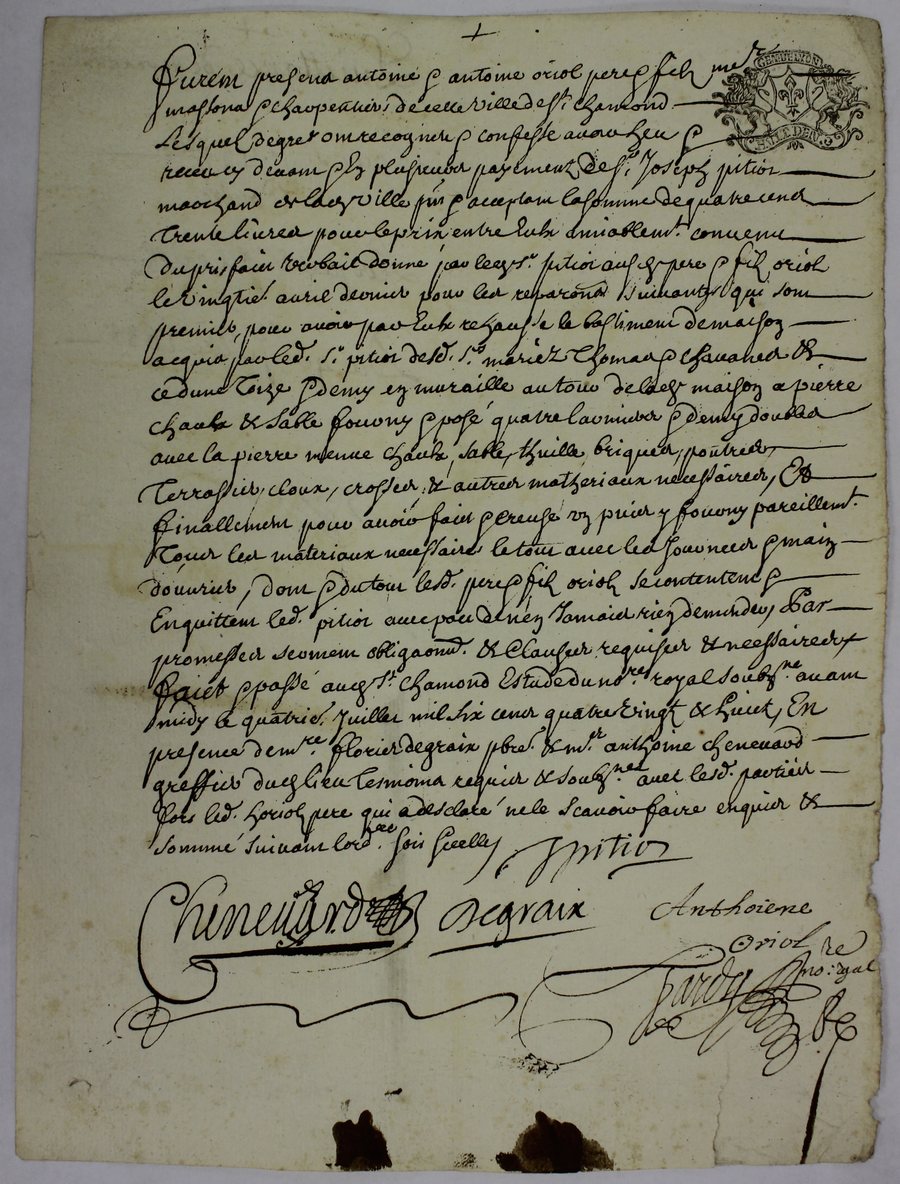 GE'N DE LYON
HUIT DEN.
Furent presens antoine & antoine oriol pere & filz me.rs
massons & charpentiers de cette ville de st. chamond
Lesquels de gre ont recogneu & confesse avoir heu &
receu cy devant & en plusieurs payements de sr. Joseph pitiot
marchand de lad. ville pnt & acceptant la somme de quatre cens
Trente livres pour le prix entre Eulx amiablemt. convenu
du prisfait verbait donné par led. sr. pitiot ausd. pere & filz oriol
le vingtie. avril dernier pour les reparons suivantes qui sont
premier, pour avoir par Eulx rehaussé le bastiment de maison
acquis par led. sr. pitiot desd. srs. mariez Thomas & chavanes &
ce dune Toize & demy en muraille autour de lad. maison a pierre
chaulx & sable fourny & posé quatre larmiers & demy doubles
avec la pierre menue chaulx, sable, thuille, briques, pontres,
Terrassies, cloux, crosses, & autres matheriaux necessaires, Et
finallement pour avoir fait & creusé un puis y fourny pareillemt.
Tous les materiaux necessaires le tout avec les journees & main
d'ouvries, dont & du tout lesd. pere & filz oriol se contentent &
En quittent led. pitiot avec pact de n'en Jamais rien demander, Par
promesses serment obligaons. & clauses requises & necessaires
faict & passé aud. st. chamond Estude du nore. royal soubzne. avant
midy le quatrie. Juillet mil six cens quatre vingt & huict, En
presence de mre. floris degraix pbre. & mr. anthoine chenevard
greffier dud. lieu tesmoins requis & soubznes. avec lesd. parties
fors led. horiol pere qui a desclaré ne le scavoir faire enquis &
sommé suivant lordre. soit scellé
J pitiot
Chenevard
Degraix
Anthoiene
Oriol
Gardy
no: royal